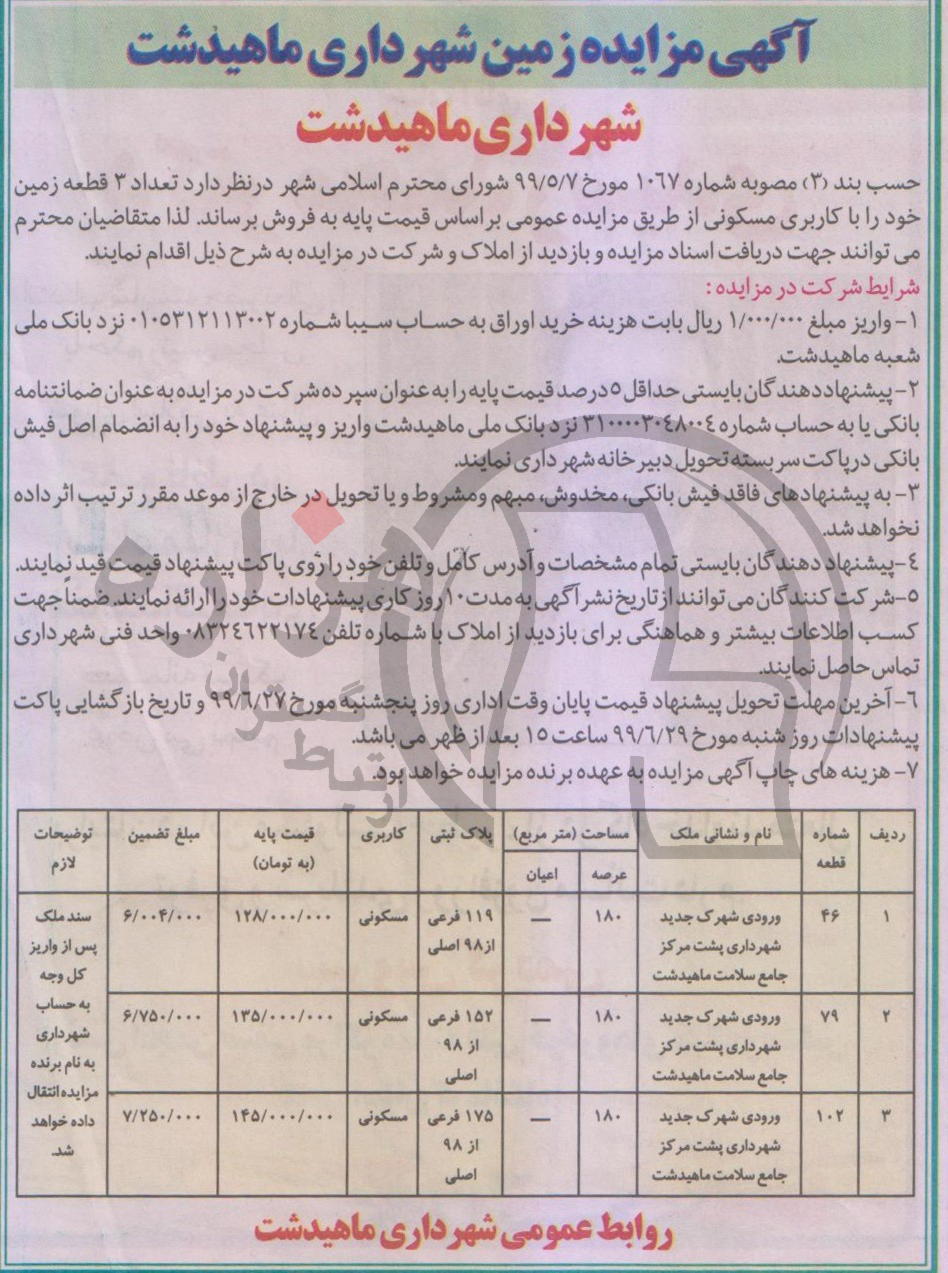 آگهی مزایده زمین شهرداری ماهیدشت
شهرداری ماهیدشت
حسب بند (۳) مصوبه شماره ۱۰۶۷ مورخ ۹۹/۵/۷ شورای محترم اسلامی شهر درنظر دارد تعداد ۳ قطعه زمین
خود را با کاربری مسکونی از طریق مزایده عمومی براساس قیمت پایه به فروش برساند. لذا متقاضیان محترم
می توانند جهت دریافت اسناد مزایده و بازدید از املاک و شرکت در مزایده به شرح ذیل اقدام نمایند.
شرایط شرکت در مزایده :
۱- واریز مبلغ ۱/۰۰۰/۰۰۰ ریال بابت هزینه خرید اوراق به حساب سیبا شماره ۰۱۰۵۳۱۲۱۱۳۰۰۲ نزد بانک ملی
شعبه ماهیدشت.
۲- پیشنهاددهندگان بایستی حداقل ۵درصد قیمت پایه را به عنوان سپرده شرکت در مزایده به عنوان ضمانتنامه
بانکی یا به حساب شماره ۳۱۰۰۰۰۳۰۴۸۰۰۴ نزد بانک ملی ماهیدشت واریز و پیشنهاد خود را به انضمام اصل فیش
بانکی درپاکت سربسته تحویل دبیرخانه شهرداری نمایند.
۳- به پیشنهادهای فاقد فیش بانکی، مخدوش، مبهم ومشروط و یا تحویل در خارج از موعد مقرر ترتیب اثر داده
نخواهد شد.
۴- پیشنهاد دهندگان بایستی تمام مشخصات و آدرس کامل و تلفن خود را روی پاکت پیشنهاد قیمت قید نمایند.
۵- شرکت کنندگان می توانند از تاریخ نشر آگهی به مدت ۱۰ روز کاری پیشنهادات خود را ارائه نمایند. ضمناً جهت
کسب اطلاعات بیشتر و هماهنگی برای بازدید از املاک با شماره تلفن ۰۸۳۲۴۶۲۲۱۷۴ واحد فنی شهرداری
تماس حاصل نمایند.
۶- آخرین مهلت تحویل پیشنهاد قیمت پایان وقت اداری روز پنجشنبه مورخ ۹۹/۶/۲۷ و تاریخ بازگشایی پاکت
پیشنهادات روز شنبه مورخ ۹۹/۶/۲۹ ساعت ۱۵ بعد از ظهر می باشد.
۷- هزینه های چاپ آگهی مزایده به عهده برنده مزایده خواهد بود.
ردیف شماره قطعه نام و نشانی ملک مساحت (متر مربع) پلاک ثبتی کاربری قیمت پایه (به تومان) مبلغ تضمین توضیحات لازم
عرصه اعیان
۱ ۴۶ ورودی شهرک جدید شهرداری پشت مرکز جامع سلامت ماهیدشت ۱۸۰ — ۱۱۹ فرعی از ۹۸ اصلی مسکونی ۱۲۸/۰۰۰/۰۰۰ ۶/۰۰۴/۰۰۰ سند ملک پس از واریز کل وجه به حساب شهرداری به نام برنده مزایده انتقال داده خواهد شد.
۲ ۷۹ ورودی شهرک جدید شهرداری پشت مرکز جامع سلامت ماهیدشت ۱۸۰ — ۱۵۲ فرعی از ۹۸ اصلی مسکونی ۱۳۵/۰۰۰/۰۰۰ ۶/۷۵۰/۰۰۰
۳ ۱۰۲ ورودی شهرک جدید شهرداری پشت مرکز جامع سلامت ماهیدشت ۱۸۰ — ۱۷۵ فرعی از ۹۸ اصلی مسکونی ۱۴۵/۰۰۰/۰۰۰ ۷/۲۵۰/۰۰۰
روابط عمومی شهرداری ماهیدشت